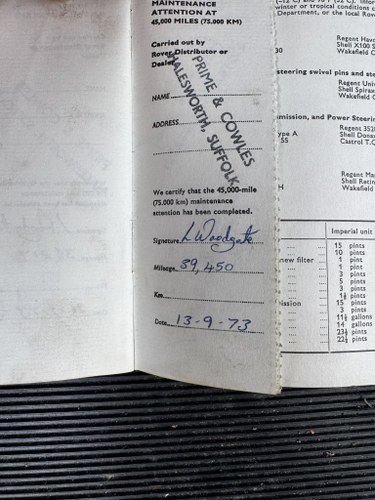 MAINTENANCE
ATTENTION AT
45,000 MILES (75.000 KM)
Carried out by
Rover Distributor or
Dealer
PRIME & COWLES
HALESWORTH, SUFFOLK
NAME
ADDRESS
We certify that the 45,000-mile
(75.000 km) maintenance
attention has been completed.
Signature L Woodgate
Mileage 39,450
Km
Date 13-9-73
winter or tropical conditions
Department, or the local
Regent
Shell X100
30 Wakefield
steering swivel pins and
Regent
Shell Spirax
Wakefield
mission, and Power Steering
Type A Regent
55 Shell Donax
Castrol T.Q.
Regent
Shell
H Wakefield
Imperial unit
15 pints
10 pints
new filter 1 pint
1 pint
3 pints
5 pints
3 pints
1½ pints
mission 15 pints
3 pints
11½ gallons
14 gallons
23½ pints
22½ pints